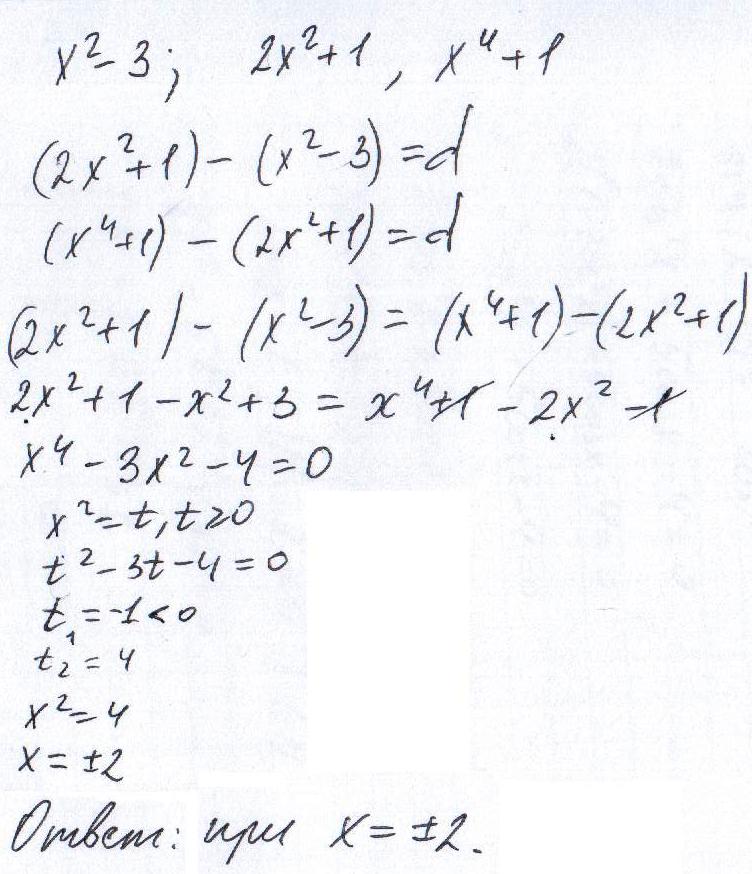 x² - 3; 2x² + 1, x⁴ + 1
(2x² + 1) - (x² - 3) = d
(x⁴ + 1) - (2x² + 1) = d
(2x² + 1) - (x² - 3) = (x⁴ + 1) - (2x² + 1)
2x² + 1 - x² + 3 = x⁴ + 1 - 2x² - 1
x⁴ - 3x² - 4 = 0
x² = t, t ≥ 0
t² - 3t - 4 = 0
t₁ = -1 < 0
t₂ = 4
x² = 4
x = ±2
Ответ: при x = ±2.